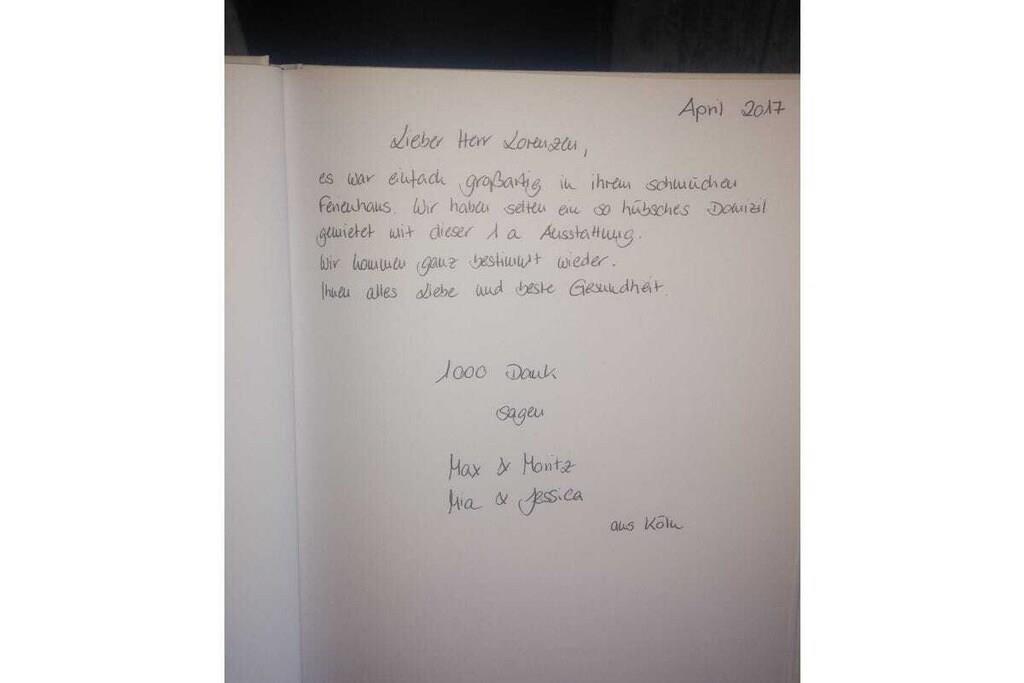 April 2017
Lieber Herr Lorenzen,
es war einfach großartig in ihrem schmucken
Ferienhaus. Wir haben selten ein so hübsches Domizil
gemietet mit dieser 1a Ausstattung.
Wir kommen ganz bestimmt wieder.
Ihnen alles Liebe und beste Gesundheit.
1000 Dank
sagen
Max & Moritz
Mia & Jessica
aus Köln